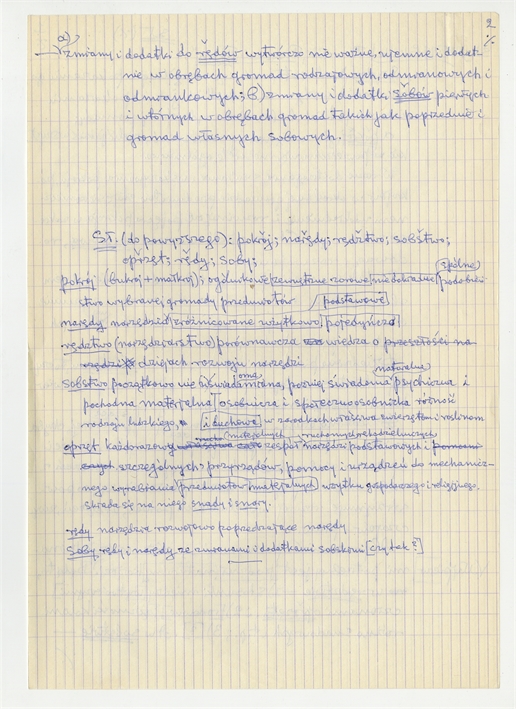 2
a)
zmiany i dodatki do rędów wytwórczo nie ważne, ujemne i dodat-
nie w obrębach gromad rodzajowych, odmianowych i
odmiankowych; b) zmiany i dodatki sobów pierwych
i wtórnych w obrębach gromad takich jak poprzednie i
gromad własnych sobowych.
Sł. (do powyższego): pokrój; narędy; rędztwo; sobstwo;
opręt; rędy; soby;
spólne
pokrój (bukrój + małkrój); ogólnikowe zewnętrzne zarowe, niedokładne podobień-
stwo wybranej gromady przedmiotów podstawowe
narędy narzędzia zróżnicowane użytkowo, pojedyńcze
rędztwo (narzędziarstwo) porównawcza wiedza o przeszłości na
dziejach rozwoju narzędzi
naturalna
sobstwo początkowo nie uświadamiona, później świadoma psychiczna i
pochodna materjalna osobnicza i społecznoosobnicza różność
rodzaju ludzkiego, i duchowa w zarodkach właściwa zwierzętom i roślinom
materjalnych ruchomych rękodzielniczych
opręt każdorazowy zespół narzędzi podstawowych i
szczególnych przyrządów, pomocy i urządzeń do mechanicz-
nego wyrabiania przedmiotów materjalnych użytku gospodarczego i religijnego.
składa się na niego snady i snory.
rędy narzędzia rozwojowo poprzedzające narędy
Soby rędy i narędy ze zmianami i dodatkami sobskimi [czy tak?]